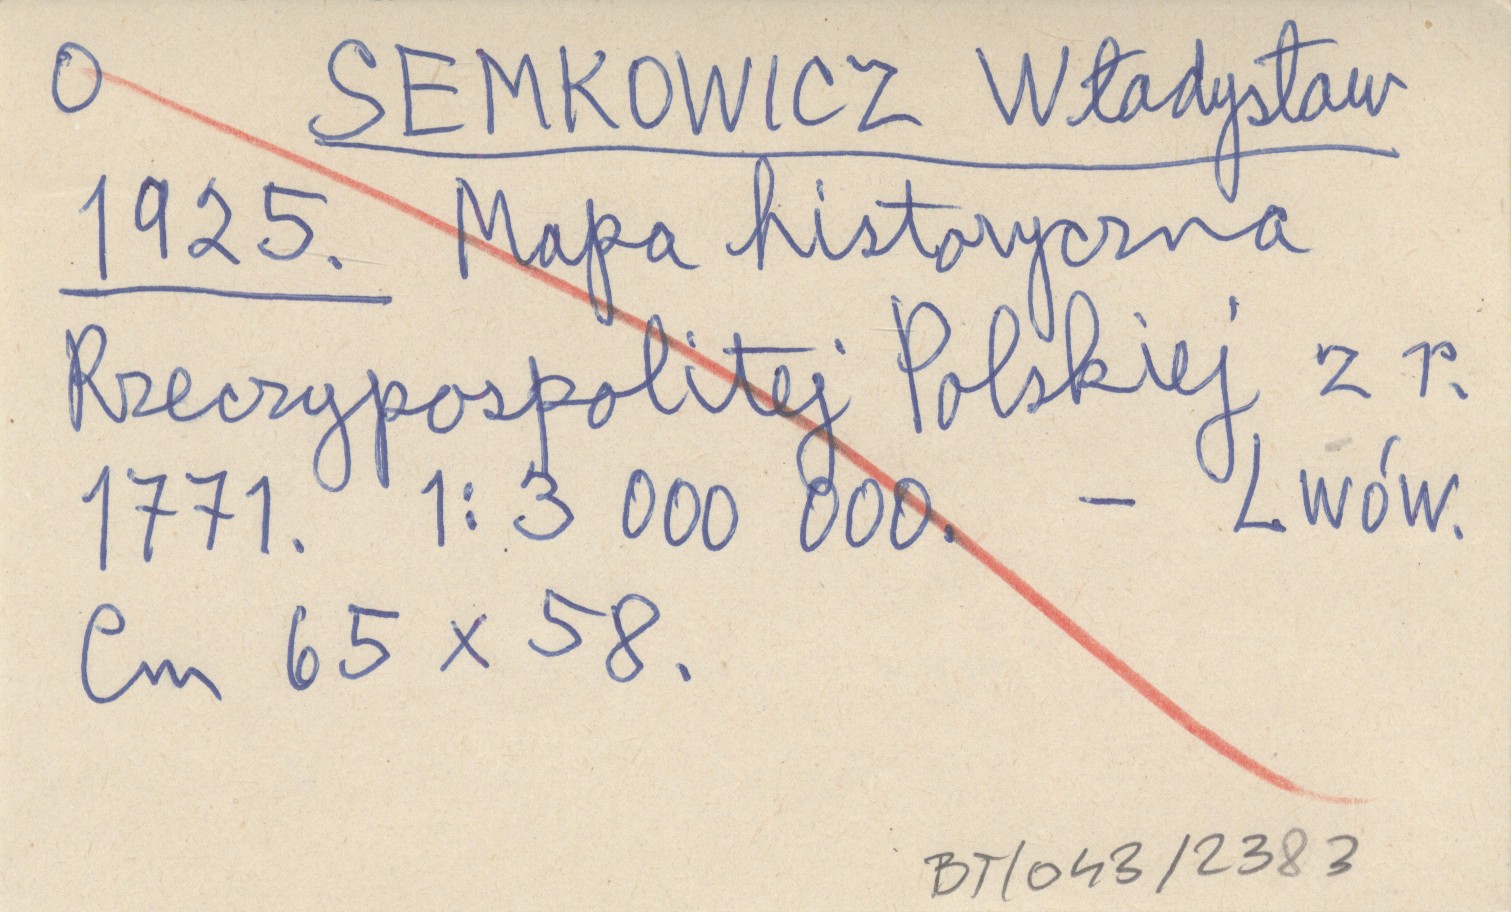 O SEMKOWICZ Władysław
1925. Mapa historyczna
Rzeczypospolitej Polskiej z r.
1771. 1:3 000 000. - Lwów.
Cm 65 x 58.
BT/043/2383